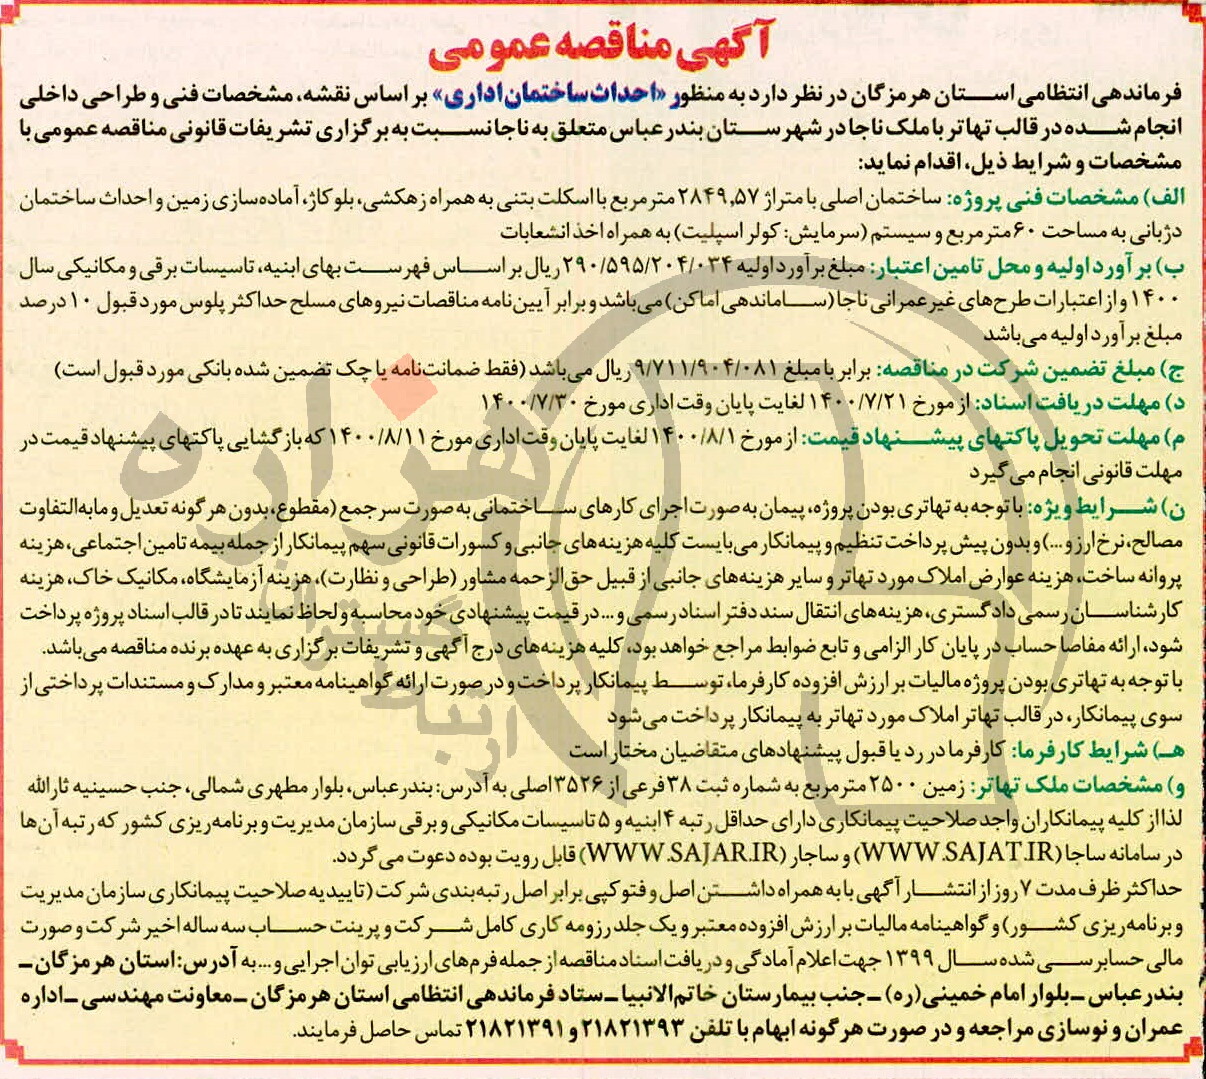 آگهی مناقصه عمومی
فرماندهی انتظامی استان هرمزگان در نظر دارد به منظور «احداث ساختمان اداری» بر اساس نقشه، مشخصات فنی و طراحی داخلی
انجام شده در قالب تهاتر با ملک ناجا در شهرستان بندرعباس متعلق به ناجا نسبت به برگزاری تشریفات قانونی مناقصه عمومی با
مشخصات و شرایط ذیل، اقدام نماید:
الف) مشخصات فنی پروژه: ساختمان اصلی با متراژ ۲۸۴۹,۵۷ مترمربع با اسکلت بتنی به همراه زهکشی، بلوکاژ، آماده‌سازی زمین و احداث ساختمان
دژبانی به مساحت ۶۰ مترمربع و سیستم (سرمایش: کولر اسپلیت) به همراه اخذ انشعابات
ب) برآورد اولیه و محل تامین اعتبار: مبلغ برآورد اولیه ۲۹۰/۵۹۵/۲۰۴/۰۳۴ ریال بر اساس فهرست بهای ابنیه، تاسیسات برقی و مکانیکی سال
۱۴۰۰ و از اعتبارات طرح‌های غیرعمرانی ناجا (ساماندهی اماکن) می‌باشد و برابر آیین‌نامه مناقصات نیروهای مسلح حداکثر پلوس مورد قبول ۱۰ درصد
مبلغ برآورد اولیه می‌باشد
ج) مبلغ تضمین شرکت در مناقصه: برابر با مبلغ ۹/۷۱۱/۹۰۴/۰۸۱ ریال می‌باشد (فقط ضمانت‌نامه یا چک تضمین شده بانکی مورد قبول است)
د) مهلت دریافت اسناد: از مورخ ۱۴۰۰/۷/۲۱ لغایت پایان وقت اداری مورخ ۱۴۰۰/۷/۳۰
م) مهلت تحویل پاکتهای پیشنهاد قیمت: از مورخ ۱۴۰۰/۸/۱ لغایت پایان وقت اداری مورخ ۱۴۰۰/۸/۱۱ که بازگشایی پاکتهای پیشنهاد قیمت در
مهلت قانونی انجام می گیرد
ن) شرایط ویژه: با توجه به تهاتری بودن پروژه، پیمان به صورت اجرای کارهای ساختمانی به صورت سرجمع (مقطوع، بدون هرگونه تعدیل و مابه‌التفاوت
مصالح، نرخ ارز و...) و بدون پیش پرداخت تنظیم و پیمانکار می‌بایست کلیه هزینه‌های جانبی و کسورات قانونی سهم پیمانکار از جمله بیمه تامین اجتماعی، هزینه
پروانه ساخت، هزینه عوارض املاک مورد تهاتر و سایر هزینه‌های جانبی از قبیل حق‌الزحمه مشاور (طراحی و نظارت)، هزینه آزمایشگاه، مکانیک خاک، هزینه
کارشناسان رسمی دادگستری، هزینه‌های انتقال سند دفتر اسناد رسمی و... در قیمت پیشنهادی خود محاسبه و لحاظ نمایند تا در قالب اسناد پروژه پرداخت
شود، ارائه مفاصا حساب در پایان کار الزامی و تابع ضوابط مراجع خواهد بود، کلیه هزینه‌های درج آگهی و تشریفات برگزاری به عهده برنده مناقصه می‌باشد.
با توجه به تهاتری بودن پروژه مالیات بر ارزش افزوده کارفرما، توسط پیمانکار پرداخت و در صورت ارائه گواهینامه معتبر و مدارک و مستندات پرداختی از
سوی پیمانکار، در قالب تهاتر املاک مورد تهاتر به پیمانکار پرداخت می‌شود
هـ) شرایط کارفرما: کارفرما در رد یا قبول پیشنهادهای متقاضیان مختار است
و) مشخصات ملک تهاتر: زمین ۲۵۰۰ مترمربع به شماره ثبت ۳۸ فرعی از ۳۵۲۶ اصلی به آدرس: بندرعباس، بلوار مطهری شمالی، جنب حسینیه ثارالله
لذا از کلیه پیمانکاران واجد صلاحیت پیمانکاری دارای حداقل رتبه ۴ ابنیه و ۵ تاسیسات مکانیکی و برقی سازمان مدیریت و برنامه‌ریزی کشور که رتبه آن‌ها
در سامانه ساجا (WWW.SAJAT.IR) و ساجار (WWW.SAJAR.IR) قابل رویت بوده دعوت می گردد.
حداکثر ظرف مدت ۷ روز از انتشار آگهی با به همراه داشتن اصل و فتوکپی برابر اصل رتبه‌بندی شرکت (تاییدیه صلاحیت پیمانکاری سازمان مدیریت
و برنامه‌ریزی کشور) و گواهینامه مالیات بر ارزش افزوده معتبر و یک جلد رزومه کاری کامل شرکت و پرینت حساب سه ساله اخیر شرکت و صورت
مالی حسابرسی شده سال ۱۳۹۹ جهت اعلام آمادگی و دریافت اسناد مناقصه از جمله فرم‌های ارزیابی توان اجرایی و... به آدرس: استان هرمزگان ـ
بندرعباس ـ بلوار امام خمینی (ره) ـ جنب بیمارستان خاتم‌الانبیا ـ ستاد فرماندهی انتظامی استان هرمزگان ـ معاونت مهندسی ـ اداره
عمران و نوسازی مراجعه و در صورت هرگونه ابهام با تلفن ۲۱۸۲۱۳۹۳ و ۲۱۸۲۱۳۹۱ تماس حاصل فرمایند.
هزاره